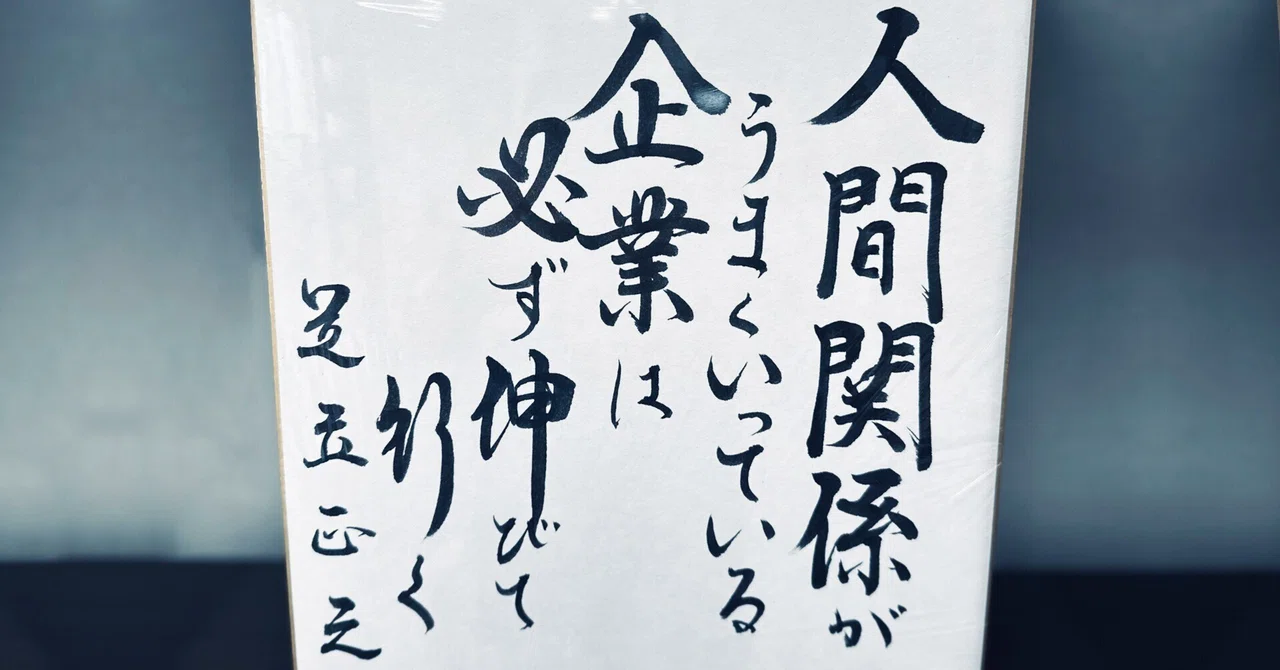 人間関係が
うまくいっている
企業は
必ず伸びて
行く
足立正之